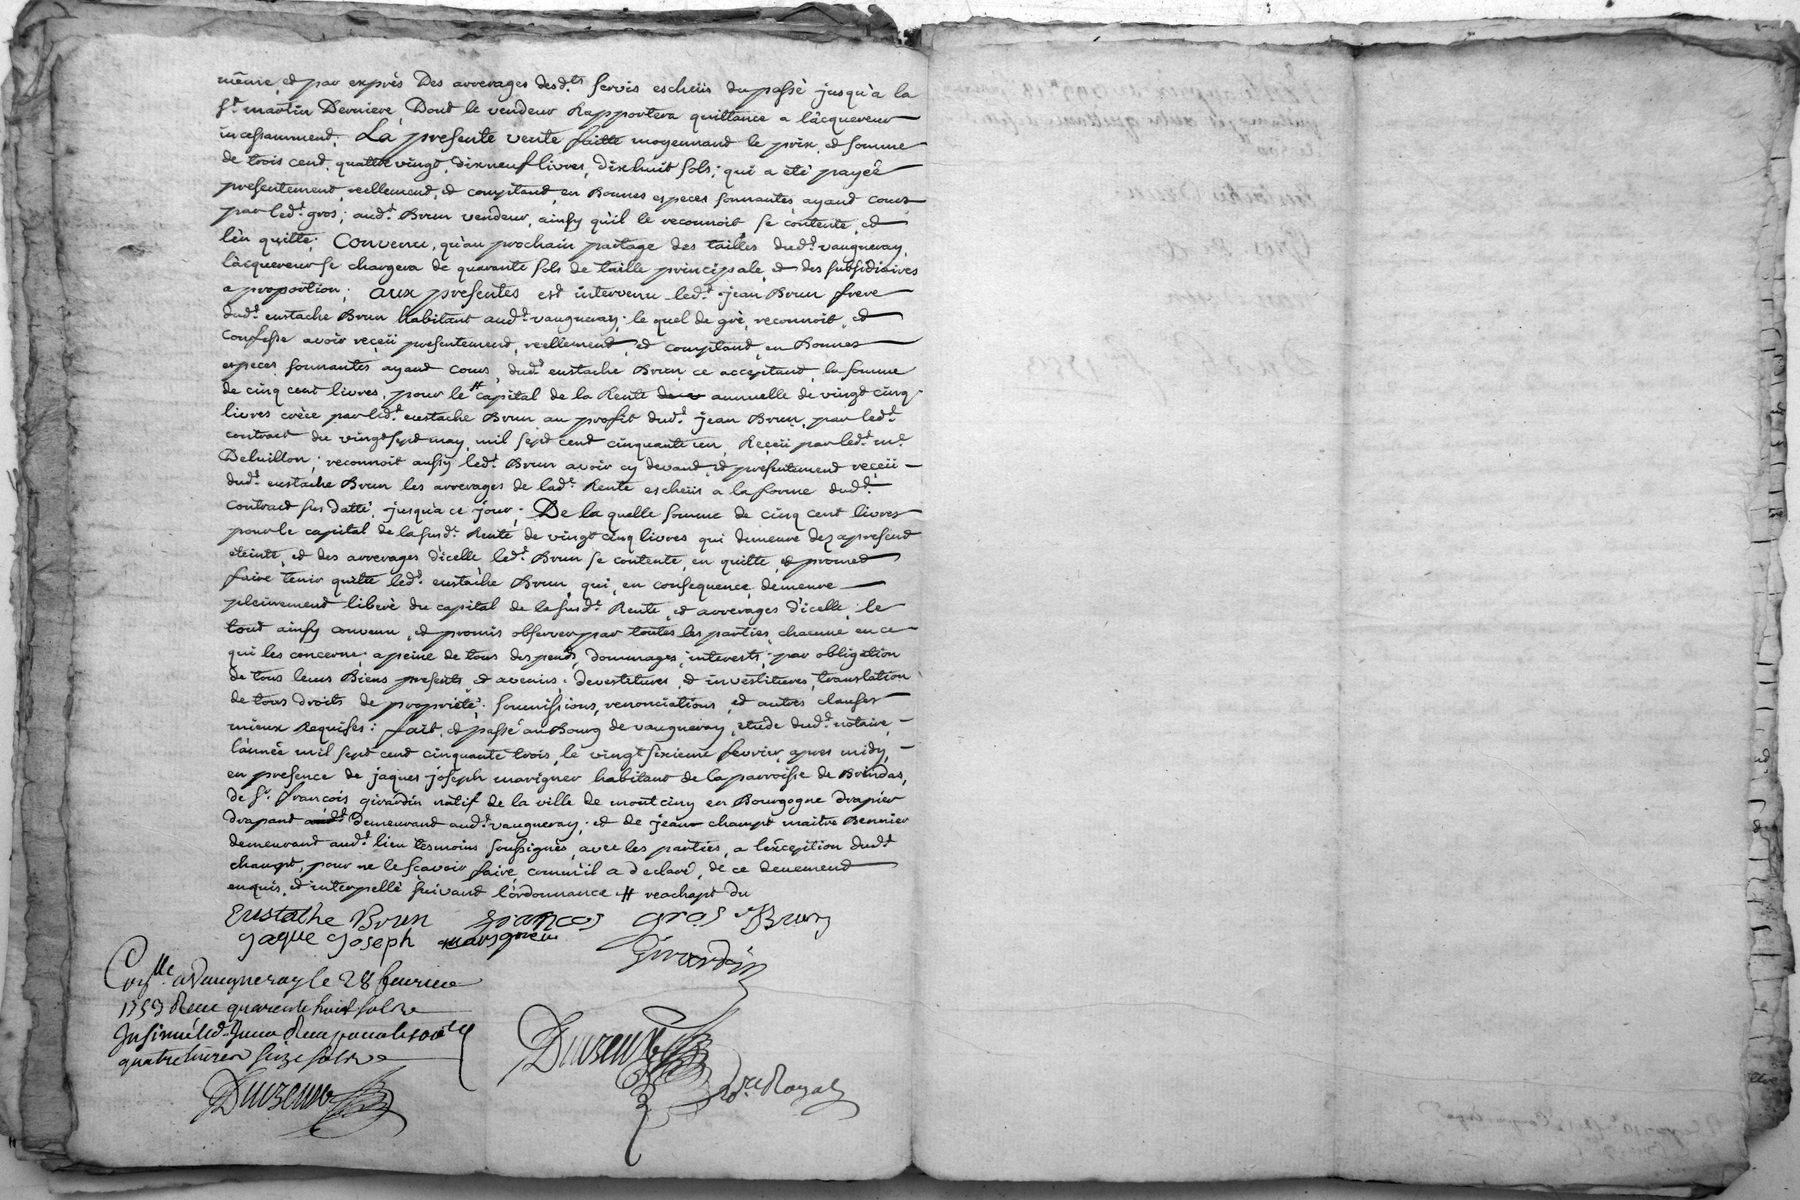 même, et par exprès Des arrerages desd.ts servis escheüs du passé jusqu'a la
S.t martin Derniere, Dont le vendeur Rapportera quittance a l'acquereur
incessamment. La presente vente faitte moyennand le prix, et somme
de trois cent, quattre vingt, dixneuf livres, dixhuit sols; qui a été payée
presentement, reellement, et comptand, en Bonnes especes sonnantes, ayand cours
par led.t gros; aud.t Brun vendeur, ainsy qu'il le reconnoit, se contente, et
l'en quitte; Convenu, qu'au prochain partage des tailles dud.t vaugneray,
l'acquereur se chargera de quarante sols de taille principale, et des subsidiaires
a proportion; aux presentes est intervenu led.t jean Brun frere
dud.t eustache Brun habitant aud.t vaugneray; le quel de gré, reconnoit, et
confesse avoir reçeü presentement, reellement, et comptand, en Bonnes
especes sonnantes ayand cours, dud.t eustache Brun, ce acceptant, la somme
de cinq cent livres, pour le # capital de la Rente annuelle de vingt cinq
livres créée par led.t eustache Brun, au profit dud.t jean Brun, par led.t
contract du vingt sept may, mil sept cent cinquante un, Reçeü par led.t m.e
Deluillon; reconnoit aussy led.t Brun avoir cy devand, et presentement reçeü
dud.t eustache Brun les arrerages de lad.te Rente escheüs a la forme dud.t
contract sus datté, jusqu'a ce jour; De la quelle somme de cinq cent livres
pour le capital de la susd.te Rente de vingt cinq livres qui demeure dez apresent
éteinte, et des arrerages d'icelle, led.t Brun se contente, en quitte, et promet
faire tenir quitte led.t eustache Brun, qui, en consequence, demeure
pleinement liberé du capital de la susd.te Rente, et arrerages d'icelle; le
tout ainsy convenu, et promis observer par toutes les parties, chacune en ce
qui les concerne; a peine de tous despends, dommages, interests; par obligation
de tous leurs Biens presents, et avenirs; devestitures, et investitures, translation
de tous droits de proprieté; soumissions, renonciations, et autres clauses
mieux Requises: fait, et passé au Bourg de vaugneray, etude dud.t notaire,
l'année mil sept cent cinquante trois, le vingt sixieme fevrier, apres midy,
en presence de jaques joseph marigner habitant de la parroisse de Brindas,
de S.r françois girardin natif de la ville de montciny en Bourgogne drapier
drapant Demeurand aud.t vaugneray; et de jean champt maitre Bennier
demeurant aud.t lieu tesmoins soussignés, avec les parties, a l'exception dud.t
champt, pour ne le sçavoir faire, comm'il a declaré, de ce duement
enquis, et interpellé suivand l'ordonnance # reachapt du
Eustache Brun françois gros Brun
jaque joseph marigner
Girardin
Con.lle a Vaugneray le 28 fevrier
1753 Reçu quarante huit sols
Insinué led. Jour Reçu pour le 100.e d.
quatre livres seize sols
Duizeux
Duizeux
No.re Royal